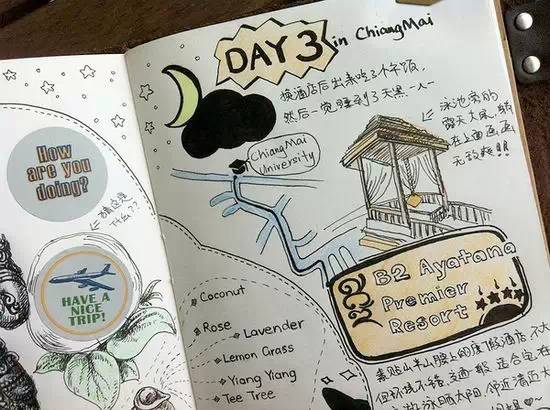 How
are you
doing?
HAVE A
NICE
TRIP!
DAY 3 in ChiangMai
换酒店后出来吃了个午饭,
然后一觉睡到了天黑一人一
泳池旁的
露天大床,躺
在上面画画
无敌爽!!
ChiangMai
University
B2 Ayatana
Premier
Resort
Coconut
Rose
Lavender
Lemon Grass
Ylang Ylang
Tee Tree
靠近山半山腰上的度假酒店,不大
但环境不错,交通一般,适合宅在